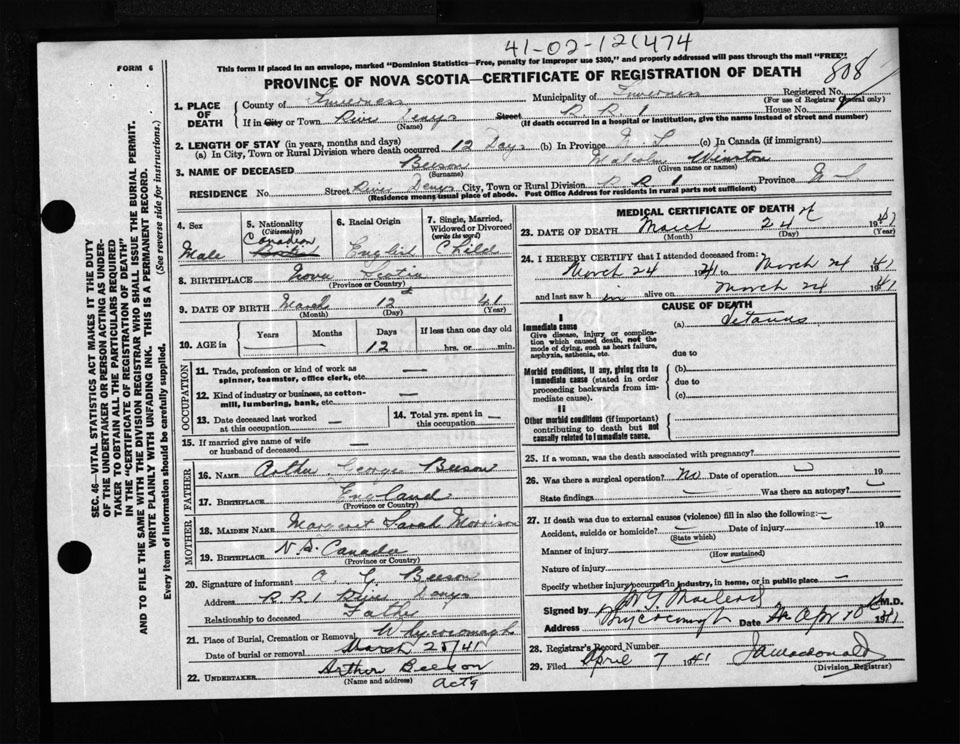 41-02-121474
FORM 6
This form if placed in an envelope, marked "Dominion Statistics—Free, penalty for improper use $300," and properly addressed will pass through the mail "FREE".
PROVINCE OF NOVA SCOTIA—CERTIFICATE OF REGISTRATION OF DEATH
808
1. PLACE OF DEATH
County of Inverness Municipality of Inverness Registered No.
(For use of Registrar General only)
If in City or Town River Denys Street R. R. 1 House No.
(Name) (If death occurred in a hospital or institution, give the name instead of street and number)
2. LENGTH OF STAY (in years, months and days)
(a) In City, Town or Rural Division where death occurred 12 Days (b) In Province N. S. (c) In Canada (if immigrant)
3. NAME OF DECEASED Beeson Malcolm Winston
(Surname) (Given name or names)
RESIDENCE No. Street River Denys City, Town or Rural Division R R 1 Province N S
(Residence means usual place of abode. Post Office Address for residents in rural parts not sufficient)
4. Sex Male
5. Nationality (Citizenship) Canadian
6. Racial Origin English
7. Single, Married, Widowed or Divorced (write the word) Child
8. BIRTHPLACE Nova Scotia
(Province or Country)
9. DATE OF BIRTH March 12 41
(Month) (Day) (Year)
10. AGE in Years — Months — Days 12 If less than one day old hrs. or min.
OCCUPATION
11. Trade, profession or kind of work as spinner, teamster, office clerk, etc. —
12. Kind of industry or business, as cotton-mill, lumbering, bank, etc. —
13. Date deceased last worked at this occupation —
14. Total yrs. spent in this occupation —
15. If married give name of wife or husband of deceased —
FATHER
16. NAME Arthur George Beeson
17. BIRTHPLACE England
(Province or Country)
MOTHER
18. MAIDEN NAME Margaret Sarah Morrison
19. BIRTHPLACE N.S. Canada
(Province or Country)
20. Signature of informant A G Beeson
Address R. R. 1 River Denys
Relationship to deceased Father
21. Place of Burial, Cremation or Removal Whycocomagh
Date of burial or removal March 25/41
22. UNDERTAKER Arthur Beeson
(Name and address) Actg
MEDICAL CERTIFICATE OF DEATH
23. DATE OF DEATH March 24 1941
(Month) (Day) (Year)
24. I HEREBY CERTIFY that I attended deceased from:
March 24 1941 to March 24 1941
and last saw h im alive on March 24 1941
CAUSE OF DEATH
I
Immediate cause (a) Tetanus
Give disease, injury or complication which caused death, not the mode of dying, such as heart failure, asphyxia, asthenia, etc.
due to
Morbid conditions, if any, giving rise to immediate cause (stated in order proceeding backwards from immediate cause). (b)
due to
(c)
II
Other morbid conditions (if important) contributing to death but not causally related to immediate cause.
25. If a woman, was the death associated with pregnancy?
26. Was there a surgical operation? No Date of operation 19
State findings Was there an autopsy?
27. If death was due to external causes (violence) fill in also the following:—
Accident, suicide or homicide? Date of injury 19
(State which)
Manner of injury
(How sustained)
Nature of injury
Specify whether injury occurred in industry, in home, or in public place —
Signed by MacLeod M.D.
Address Whycocomagh Date Apr 1941
28. Registrar's Record Number
29. Filed April 7 1941 J A Macdonald
(Division Registrar)
SEC. 46—VITAL STATISTICS ACT MAKES IT THE DUTY
OF THE UNDERTAKER OR PERSON ACTING AS UNDER-
TAKER TO OBTAIN ALL THE PARTICULARS REQUIRED
IN THE "CERTIFICATE OF REGISTRATION OF DEATH"
AND TO FILE THE SAME WITH THE DIVISION REGISTRAR WHO SHALL ISSUE THE BURIAL PERMIT.
WRITE PLAINLY WITH UNFADING INK. THIS IS A PERMANENT RECORD.
Every item of information should be carefully supplied. (See reverse side for instructions.)